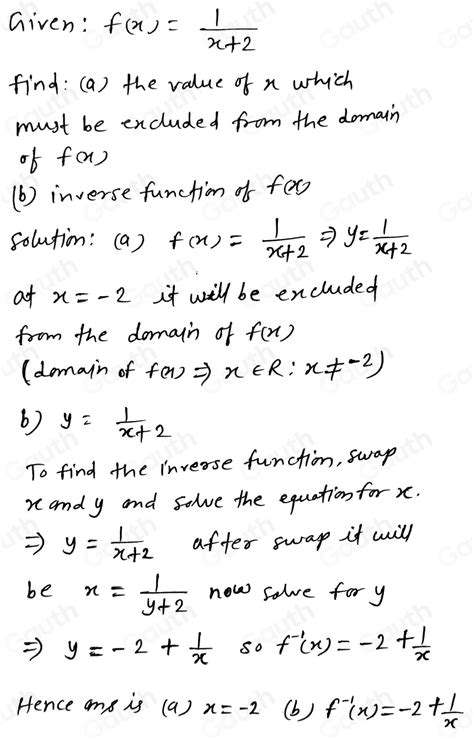 Given: f(x) = 1/(x+2)
find: (a) the value of x which
must be excluded from the domain
of f(x)
(b) inverse function of f(x)
Solution: (a) f(x) = 1/(x+2) ⇒ y = 1/(x+2)
at x = -2 it will be excluded
from the domain of f(x)
(domain of f(x) ⇒ x ∈ R : x ≠ -2)
b) y = 1/(x+2)
To find the inverse function, swap
x and y and solve the equation for x.
⇒ y = 1/(x+2) after swap it will
be x = 1/(y+2) now solve for y
⇒ y = -2 + 1/x so f⁻¹(x) = -2 + 1/x
Hence ans is (a) x = -2 (b) f⁻¹(x) = -2 + 1/x